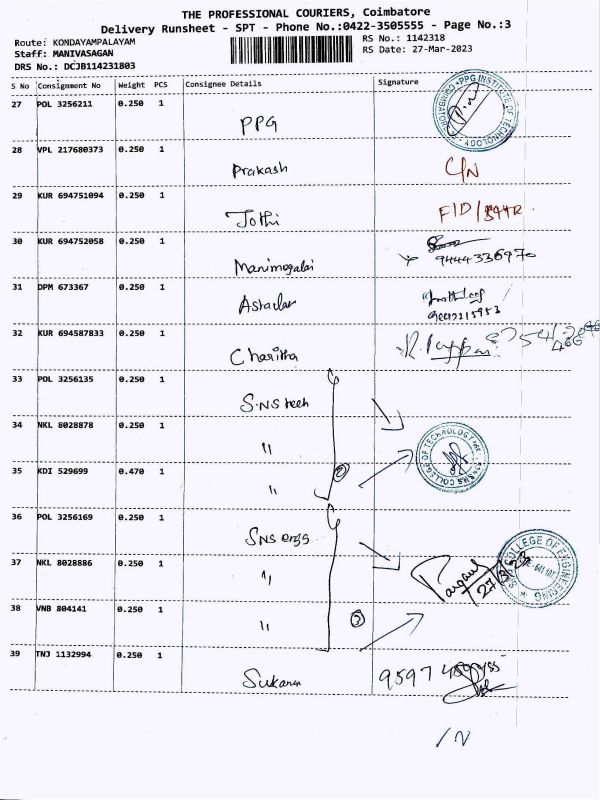 THE PROFESSIONAL COURIERS, Coimbatore
Delivery Runsheet - SPT - Phone No.:0422-3505555 - Page No.:3
Route: KONDAYAMPALAYAM
RS No.: 1142318
Staff: MANIVASAGAN
RS Date: 27-Mar-2023
DRS No.: DCJB114231803
S No Consignment No Weight PCS Consignee Details Signature
27 POL 3256211 0.250 1 PPG
28 VPL 217680373 0.250 1 Prakash C/N
29 KUR 694751094 0.250 1 Jothi
30 KUR 694752058 0.250 1 Manimegalai 9444336970
31 DPM 673367 0.250 1
32 KUR 694587833 0.250 1 Charitha
33 POL 3256135 0.250 1 S.NS tech
34 NKL 8028878 0.250 1 "
35 KDI 529699 0.470 1 " 2
36 POL 3256169 0.250 1 SNS engg
37 NKL 8028886 0.250 1 " 27/3/23
38 VNB 804141 0.250 1 " 3
39 TNJ 1132994 0.250 1 Sukanya
PPG INSTITUTE OF TECHNOLOGY
SNS COLLEGE OF TECHNOLOGY
COLLEGE OF ENGINEERING